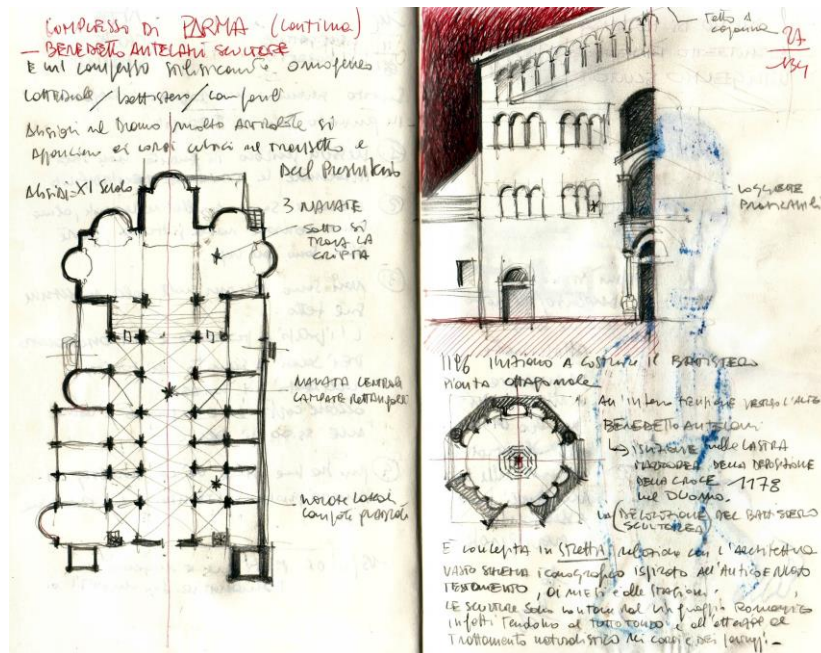 COMPLESSO DI PARMA (continua)
— BENEDETTO ANTELAMI SCULTORE
E un complesso omogeneo
cattedrale / battistero / campanile
Absidi nel Duomo molto si
ai corpi nel transetto e
del Presbiterio
Absidi - XI Secolo
3 NAVATE
SOTTO SI
TROVA LA
CRIPTA
NAVATA CENTRALE
CAMPATE RETTANGOLARI
NAVATE
campate
tetto a
capanna
27
134
LOGGETTE
PRATICABILI
1196 INIZIANO A COSTRUIRE IL BATTISTERO
PIANTA ottagonale
All'interno tensione verso l'alto
BENEDETTO ANTELAMI
ISCRIZIONE nella LASTRA
MARMOREA DELLA DEPOSIZIONE
DELLA CROCE 1178
nel DUOMO.
(DECORAZIONE DEL BATTISTERO
SCULTOREA)
E concepita in STRETTA relazione con l'Architettura
VASTO SCHEMA iconografico ISPIRATO All'Antico E NUOVO
TESTAMENTO, AI MESI e alle stagioni.
LE SCULTURE Sono lontane dal linguaggio Romanico
infatti Tendono al TUTTO TONDO e
Trattamento naturalistico dei corpi e dei